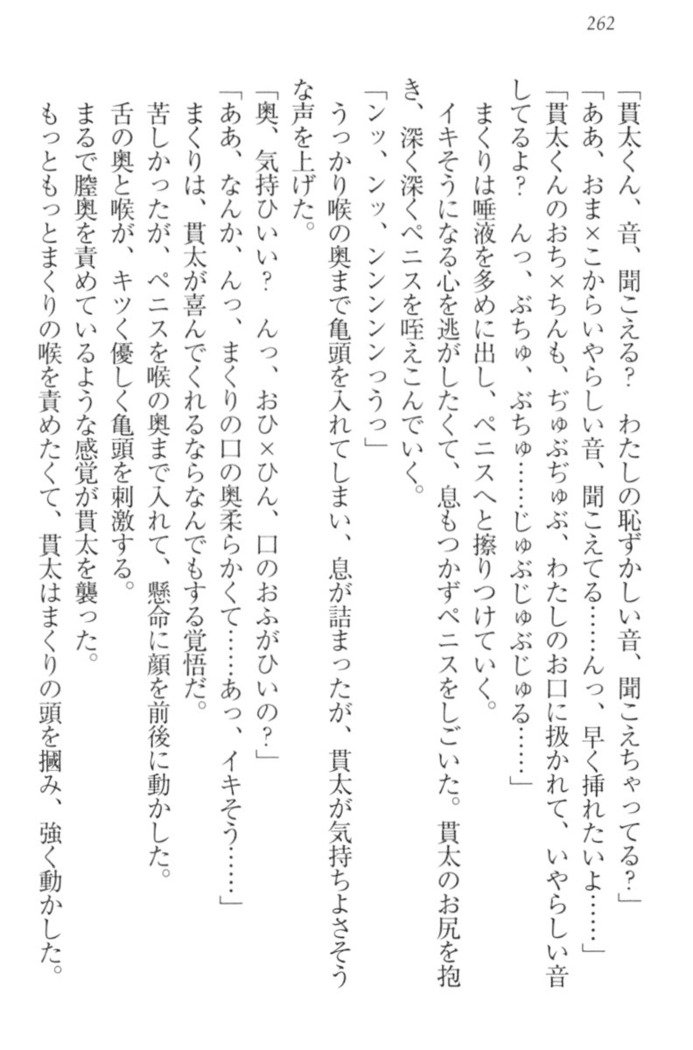 262
「貫太くん、音、聞こえる？　わたしの恥ずかしい音、聞こえちゃってる？」
「ああ、おま×こからいやらしい音、聞こえてる……んっ、早く挿れたいよ……」
「貫太くんのおち×ちんも、ぢゅぶぢゅぶ、わたしのお口に扱かれて、いやらしい音
してるよ？　んっ、ぶちゅ、ぶちゅ……じゅぶじゅぶじゅる……」
まくりは唾液を多めに出し、ペニスへと擦りつけていく。
イキそうになる心を逃がしたくて、息もつかずペニスをしごいた。貫太のお尻を抱
き、深く深くペニスを咥えこんでいく。
「ンッ、ンッ、ンンンンンっうっ」
うっかり喉の奥まで亀頭を入れてしまい、息が詰まったが、貫太が気持ちよさそう
な声を上げた。
「奥、気持ひいい？　んっ、おひ×ひん、口のおふがひいの？」
「ああ、なんか、んっ、まくりの口の奥柔らかくて……あっ、イキそう……」
まくりは、貫太が喜んでくれるならなんでもする覚悟だ。
苦しかったが、ペニスを喉の奥まで入れて、懸命に顔を前後に動かした。
舌の奥と喉が、キツく優しく亀頭を刺激する。
まるで膣奥を責めているような感覚が貫太を襲った。
もっともっとまくりの喉を責めたくて、貫太はまくりの頭を摑み、強く動かした。